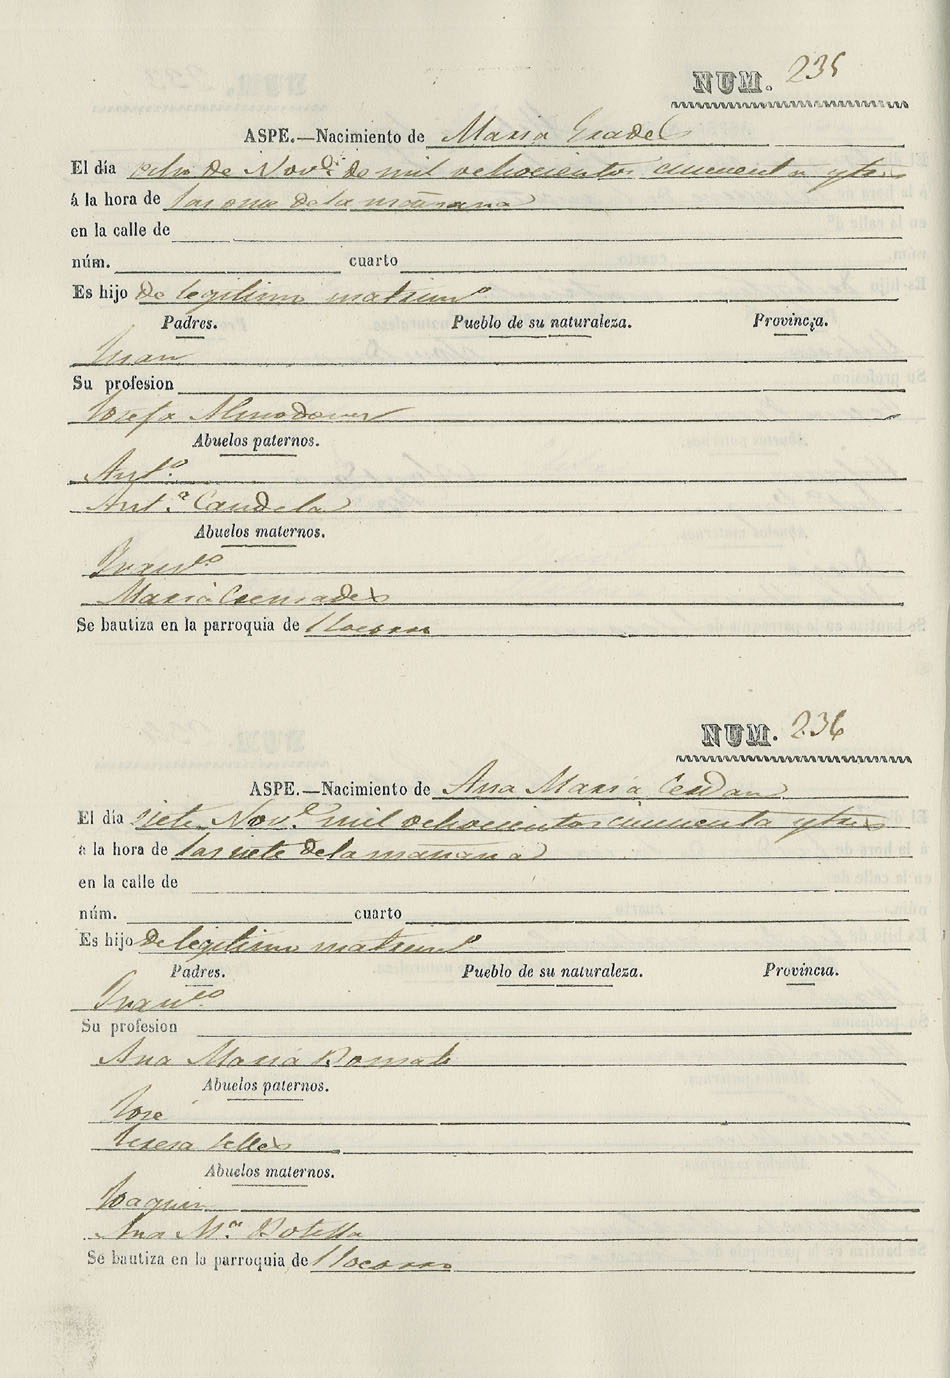 NUM. 235
ASPE.—Nacimiento de Maria Gradel
El día ocho de Nov.e de mil ochocientos cincuenta y tres
á la hora de las once de la mañana
en la calle de
núm. cuarto
Es hijo de legitimo matrim.o
Padres. Pueblo de su naturaleza. Provincia.
Juan
Su profesion
Josefa Almodover
Abuelos paternos.
Ant.o
Ant.a Candela
Abuelos maternos.
Fran.co
Maria Cremades
Se bautiza en la parroquia de Socorro
NUM. 236
ASPE.—Nacimiento de Ana Maria Cerdan
El día siete Nov.e mil ochocientos cincuenta y tres
á la hora de las siete de la mañana
en la calle de
núm. cuarto
Es hijo de legitimo matrim.o
Padres. Pueblo de su naturaleza. Provincia.
Fran.co
Su profesion
Ana Maria
Abuelos paternos.
José
Teresa Selles
Abuelos maternos.
Joaquin
Ana M.a Botella
Se bautiza en la parroquia de Socorro